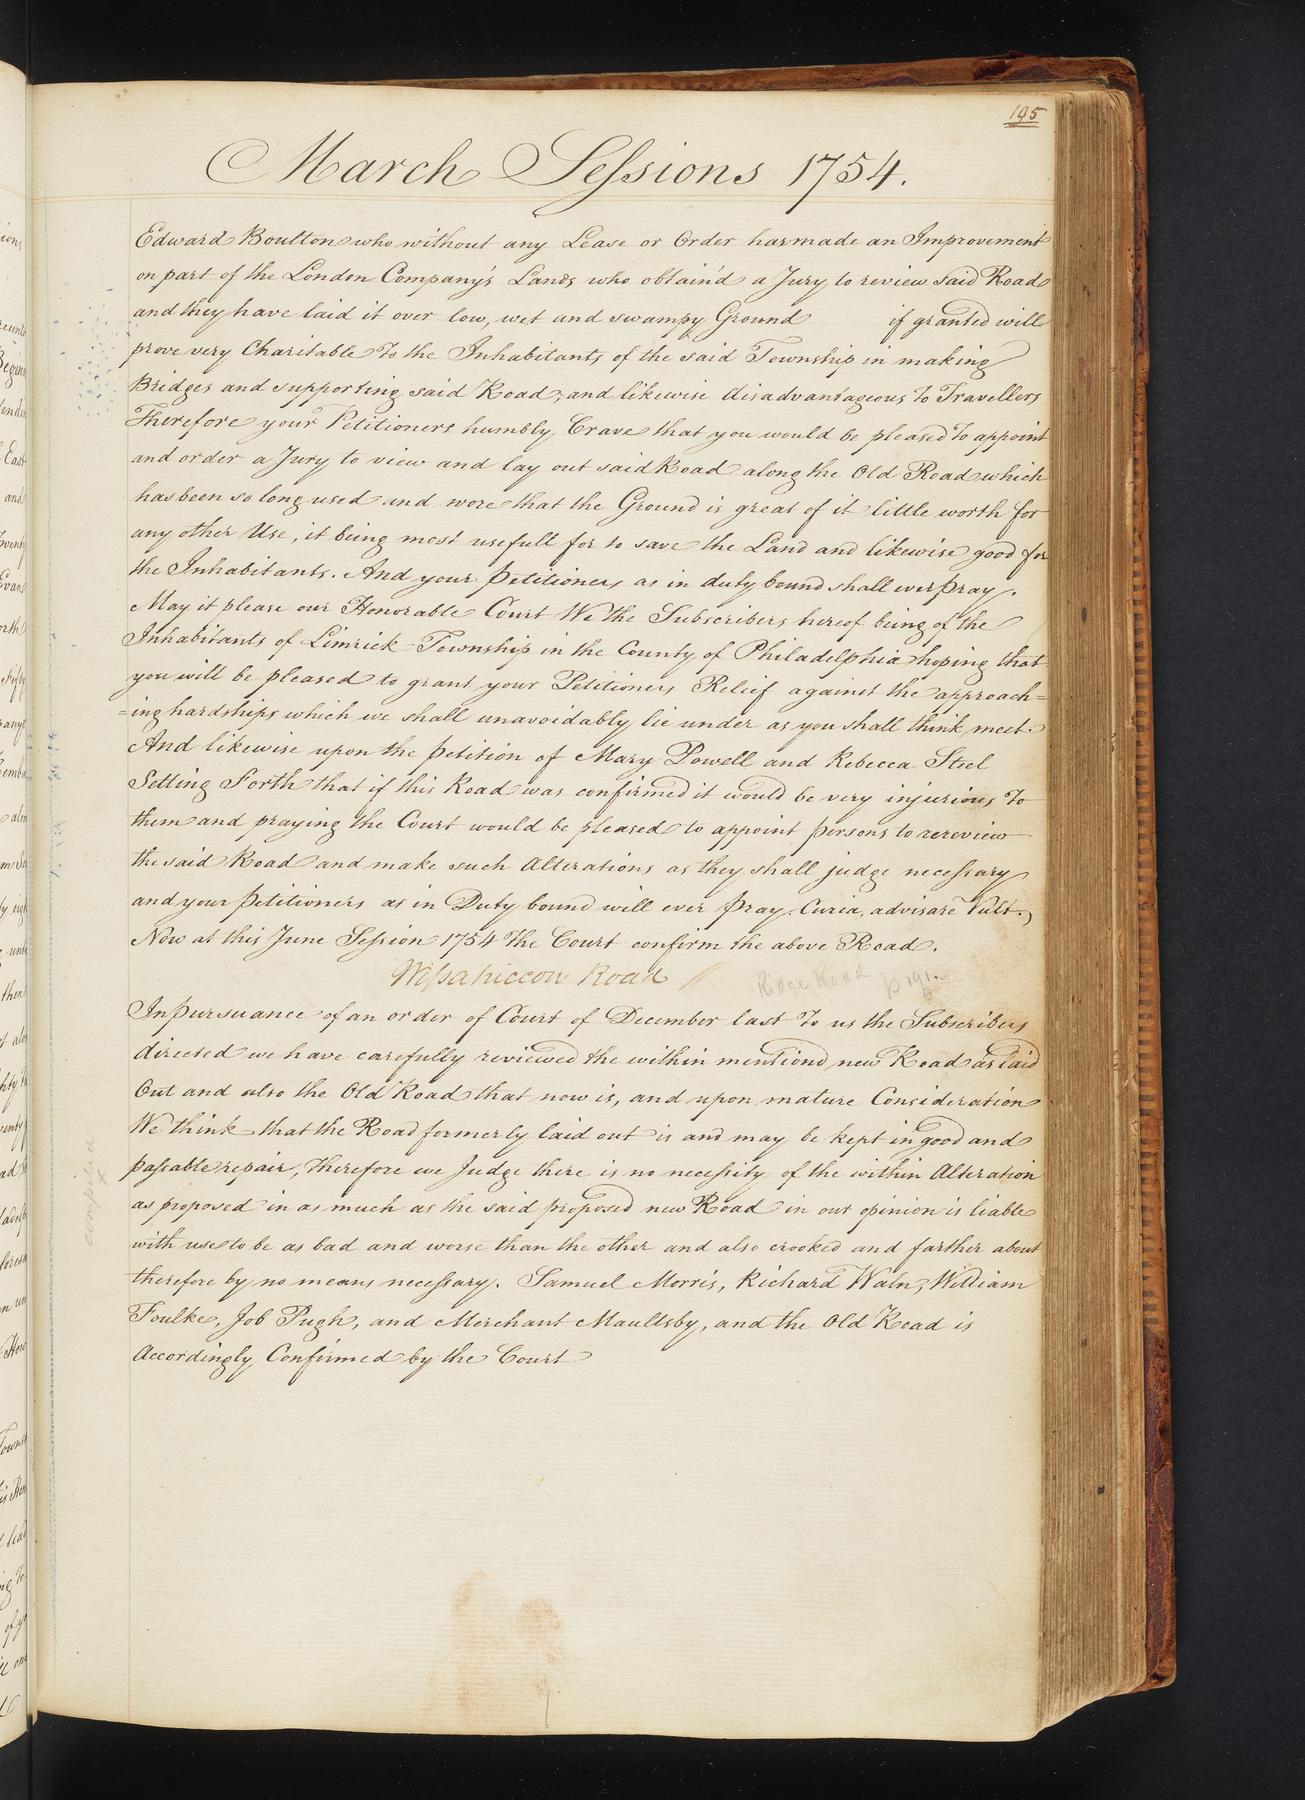 195
March Sessions 1754.
Edward Boulton who without any Lease or Order has made an Improvement
on part of the London Company's Lands who obtain'd a Jury to review said Road
and they have laid it over low, wet and swampy Ground if granted will
prove very Charitable to the Inhabitants of the said Township in making
Bridges and supporting said Road, and likewise disadvantageous to Travellers
Therefore your Petitioners humbly Crave that you would be pleased to appoint
and order a Jury to view and lay out said Road along the Old Road which
has been so long used and wore that the Ground is great of it little worth for
any other Use, it being most usefull for to save the Land and likewise good for
the Inhabitants. And your Petitioners as in duty bound shall ever pray.
May it please our Honorable Court We the Subscribers hereof being of the
Inhabitants of Limrick Township in the County of Philadelphia hoping that
you will be pleased to grant your Petitioners Relief against the approach=
=ing hardships which we shall unavoidably lie under as you shall think meet.
And likewise upon the petition of Mary Powell and Rebecca Steel
Setting Forth that if this Road was confirmed it would be very injurious to
them and praying the Court would be pleased to appoint persons to rereview
the said Road and make such Alterations as they shall judge necessary
and your petitioners as in Duty bound will ever pray. Curia, advisare Vult.
Now at this June Session 1754 the Court confirm the above Road.
Wissahiccon Road // Ridge Road p 191.
In pursuance of an order of Court of December last to us the Subscribers
directed we have carefully reviewed the within mentiond new Road as laid
Out and also the Old Road that now is, and upon mature Consideration
We think that the Road formerly laid out is and may be kept in good and
passable repair, therefore we Judge there is no necessity of the within Alteration
as proposed in as much as the said proposed new Road in our opinion is liable
with use to be as bad and worse than the other and also crooked and farther about
therefore by no means necessary. Samuel Morris, Richard Waln, William
Foulke, Job Pugh, and Merchant Maultsby, and the Old Road is
Accordingly Confirmed by the Court